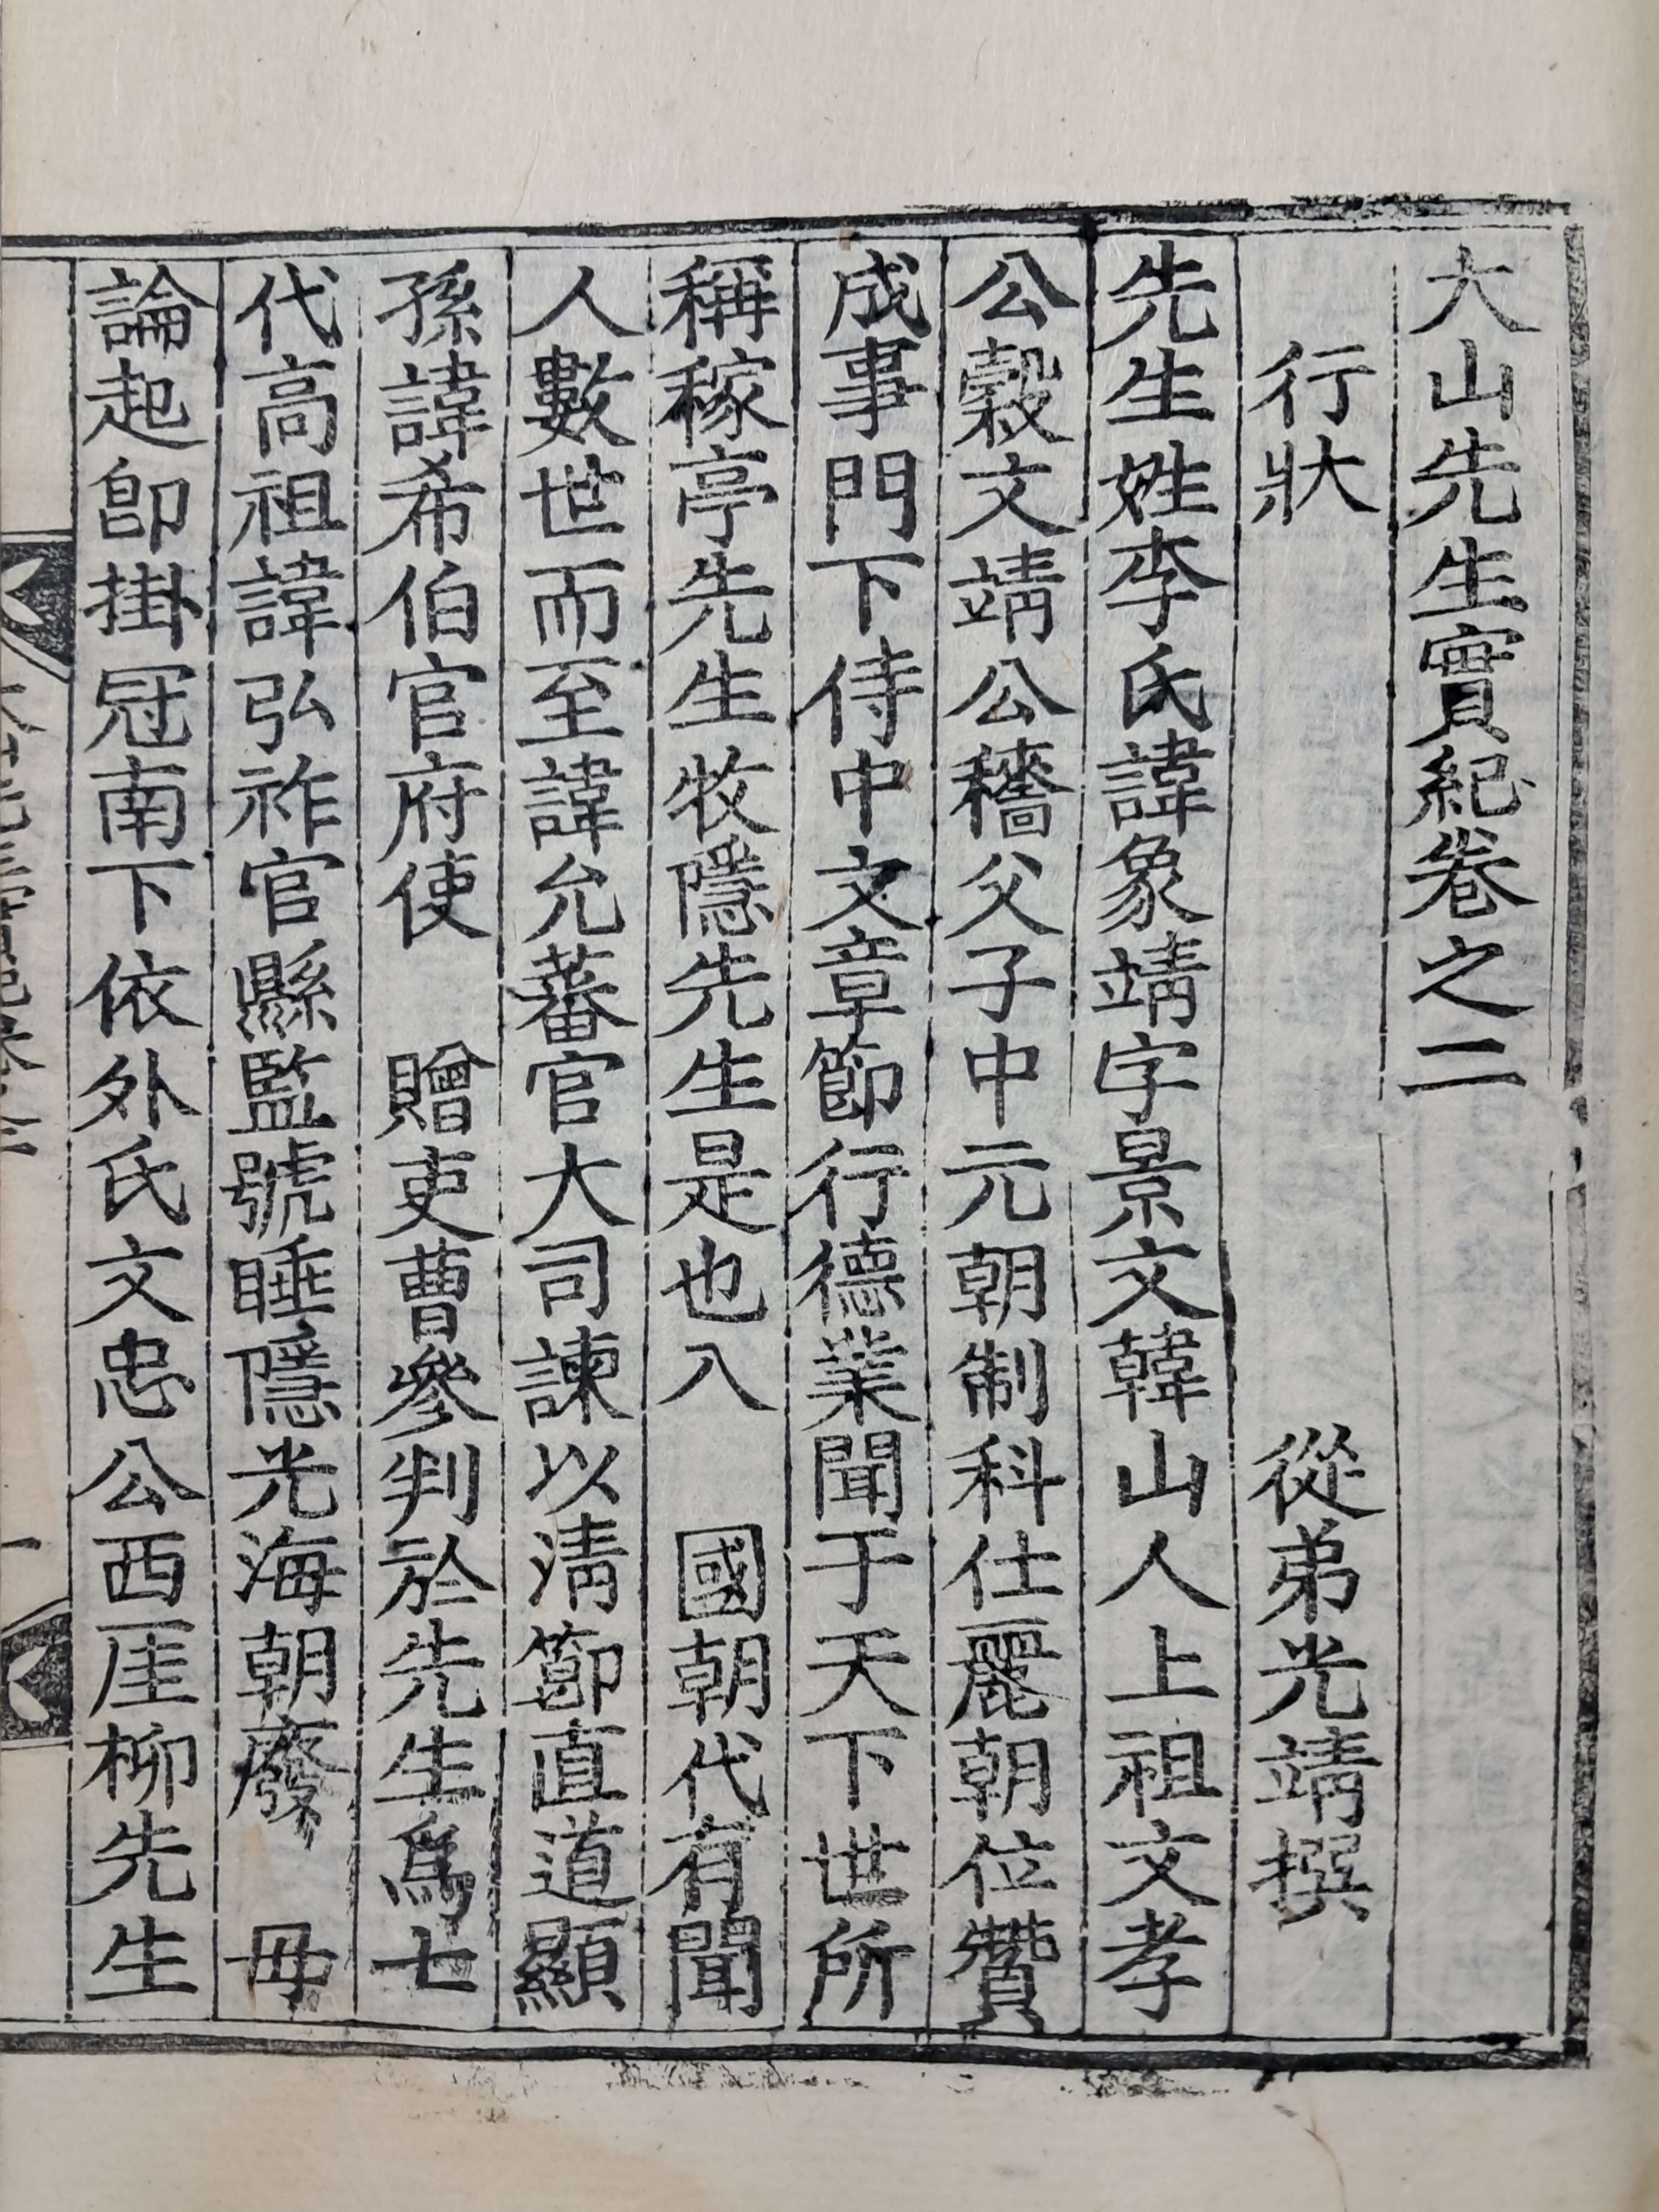 大山先生實紀卷之二
行狀 從弟光靖撰
先生姓李氏諱象靖字景文韓山人上祖文孝
公穀文靖公穡父子中元朝制科仕麗朝位贊
成事門下侍中文章節行德業聞于天下世所
稱稼亭先生牧隱先生是也入 國朝代有聞
人數世而至諱允蕃官大司諫以淸節直道顯
孫諱希伯官府使 贈吏曹參判於先生爲七
代高祖諱弘祚官縣監號睡隱光海朝廢 毋
論起卽掛冠南下依外氏文忠公西厓柳先生